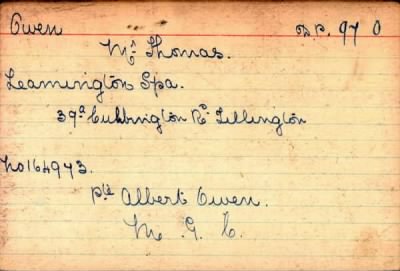 Owen D.P. 97 O
Mr Thomas.
Leamington Spa.
39a Cubbington Rd Lillington
No 164973.
Pte Albert Owen.
M. G. C.